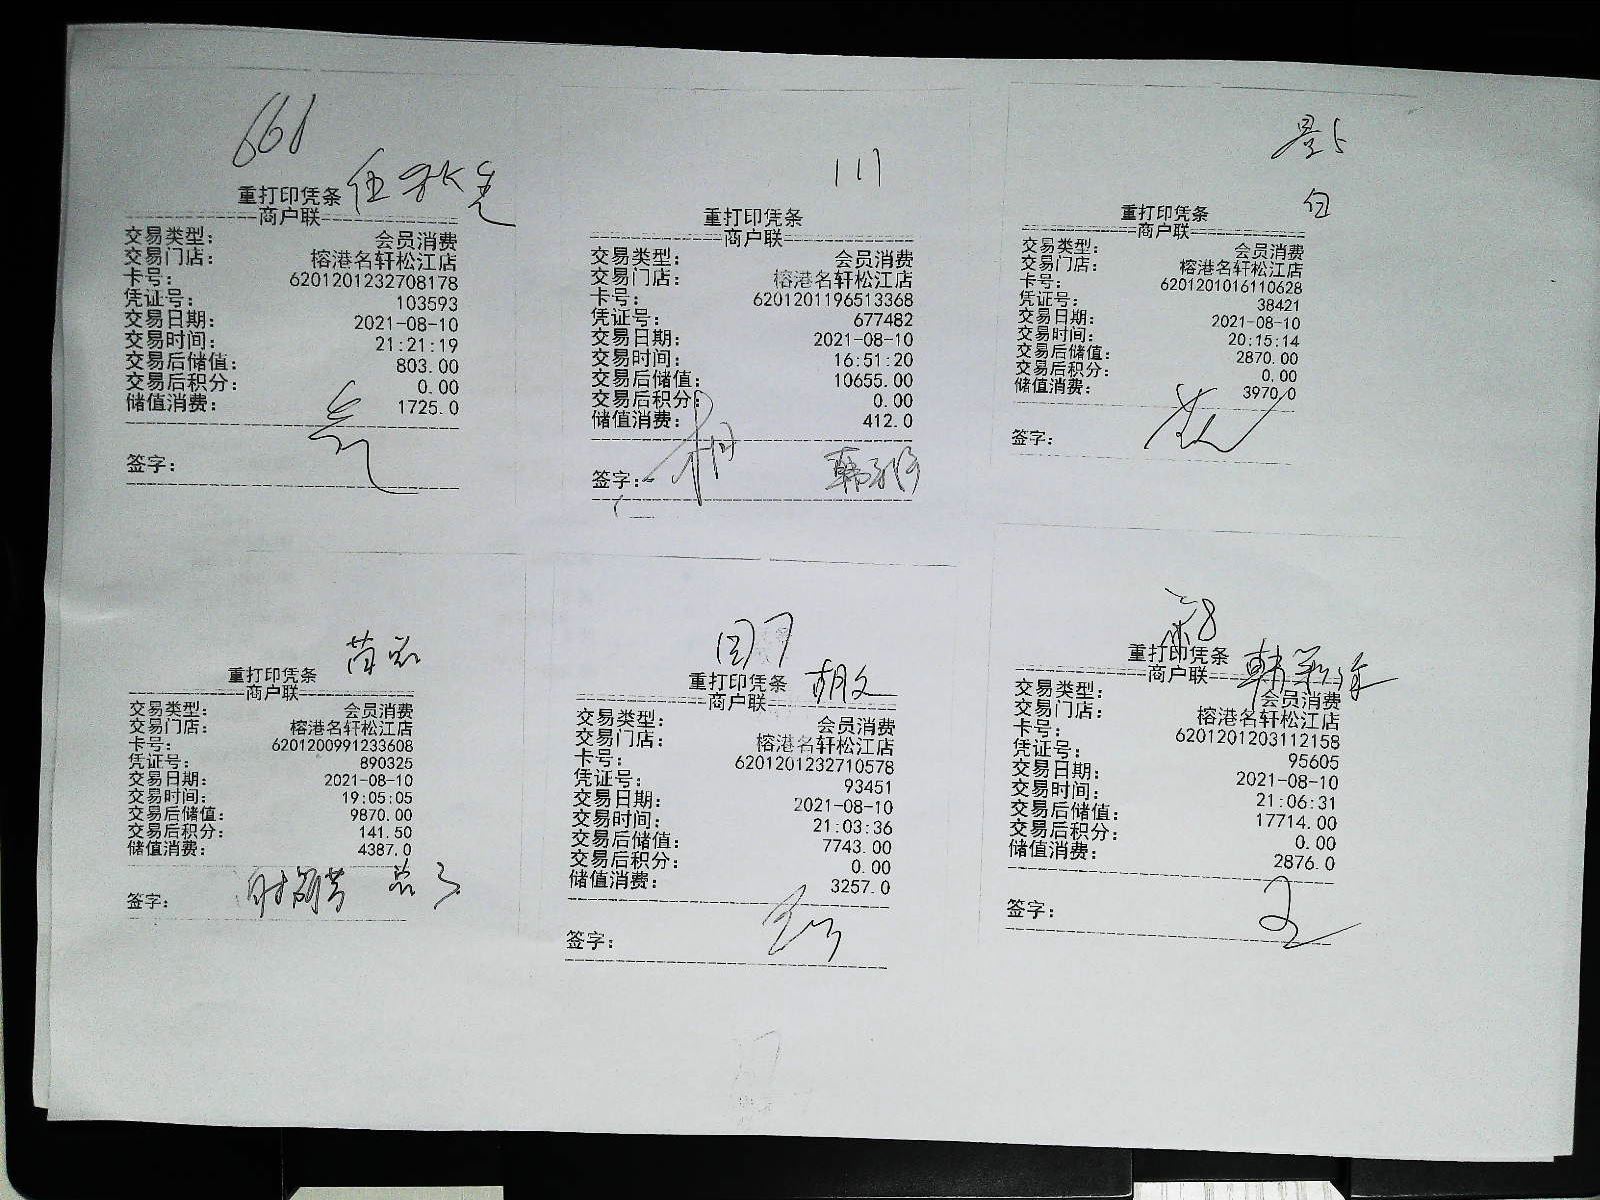 661
伍秋先
重打印凭条
商户联
交易类型: 会员消费
交易门店: 榕港名轩松江店
卡号: 6201201232708178
凭证号: 103593
交易日期: 2021-08-10
交易时间: 21:21:19
交易后储值: 803.00
交易后积分: 0.00
储值消费: 1725.0
签字:
111
重打印凭条
商户联
交易类型: 会员消费
交易门店: 榕港名轩松江店
卡号: 6201201196513368
凭证号: 677482
交易日期: 2021-08-10
交易时间: 16:51:20
交易后储值: 10655.00
交易后积分: 0.00
储值消费: 412.0
签字:
重打印凭条
商户联
交易类型: 会员消费
交易门店: 榕港名轩松江店
卡号: 6201201016110628
凭证号: 38421
交易日期: 2021-08-10
交易时间: 20:15:14
交易后储值: 2870.00
交易后积分: 0.00
储值消费: 3970.0
签字:
重打印凭条
商户联
交易类型: 会员消费
交易门店: 榕港名轩松江店
卡号: 6201200991233608
凭证号: 890325
交易日期: 2021-08-10
交易时间: 19:05:05
交易后储值: 9870.00
交易后积分: 141.50
储值消费: 4387.0
签字:
胡文
重打印凭条
商户联
交易类型: 会员消费
交易门店: 榕港名轩松江店
卡号: 6201201232710578
凭证号: 93451
交易日期: 2021-08-10
交易时间: 21:03:36
交易后储值: 7743.00
交易后积分: 0.00
储值消费: 3257.0
签字:
重打印凭条
商户联
交易类型: 会员消费
交易门店: 榕港名轩松江店
卡号: 6201201203112158
凭证号: 95605
交易日期: 2021-08-10
交易时间: 21:06:31
交易后储值: 17714.00
交易后积分: 0.00
储值消费: 2876.0
签字: